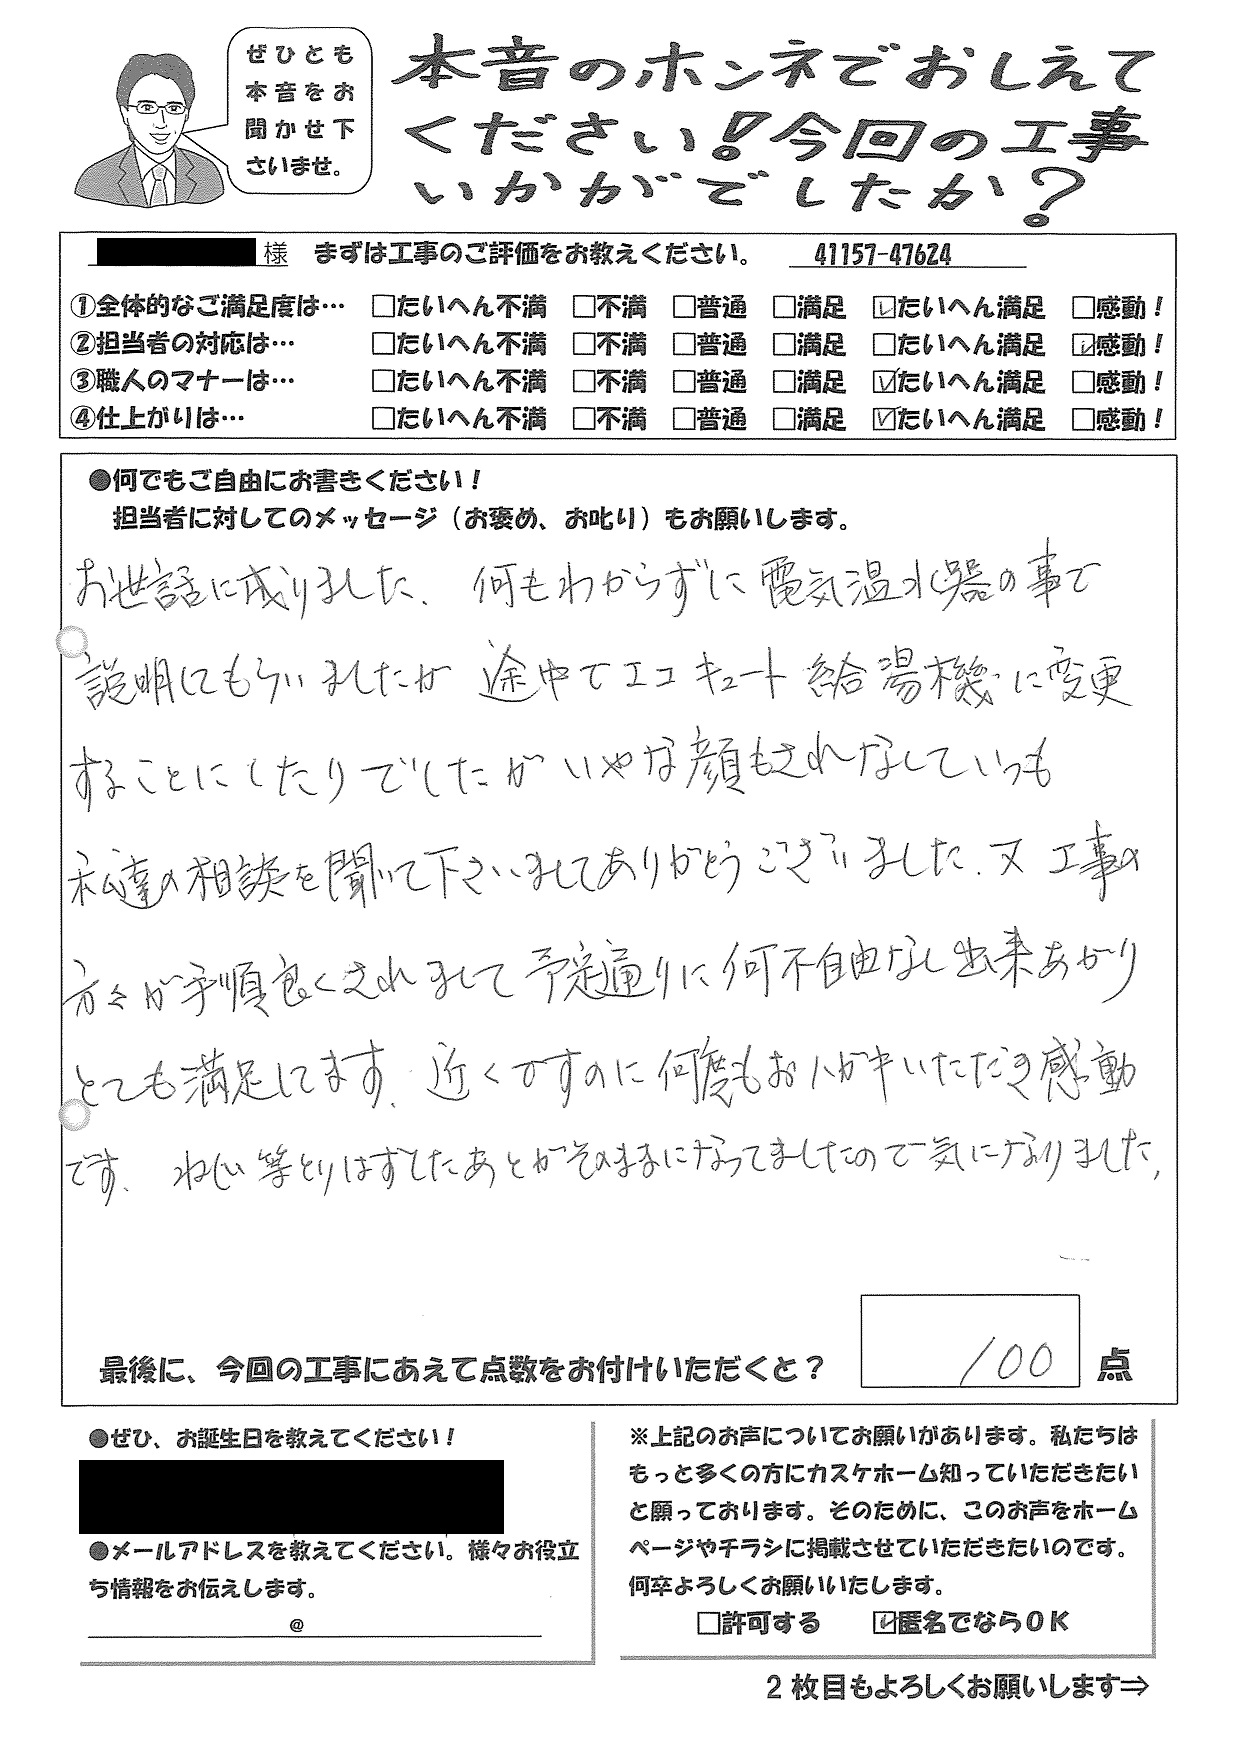 ぜひとも
本音をお
聞かせ下
さいませ。
本音のホンネでおしえて
ください！今回の工事
いかがでしたか？
様 まずは工事のご評価をお教えください。 41157-47624
①全体的なご満足度は… □たいへん不満 □不満 □普通 □満足 ☑たいへん満足 □感動！
②担当者の対応は… □たいへん不満 □不満 □普通 □満足 □たいへん満足 ☑感動！
③職人のマナーは… □たいへん不満 □不満 □普通 □満足 ☑たいへん満足 □感動！
④仕上がりは… □たいへん不満 □不満 □普通 □満足 ☑たいへん満足 □感動！
●何でもご自由にお書きください！
担当者に対してのメッセージ（お褒め、お叱り）もお願いします。
お世話に成りました、何もわからずに電気温水器の事で
説明してもらいましたが 途中でエコキュート給湯機に変更
することにしたりでしたが いやな顔もされなしていつも
私達の相談を聞いて下さいましてありがとうございました、又 工事の
方々が手順良くされまして予定通りに何不自由なし出来あがり
とても満足してます、近くですのに何度もおハガキいただき感動
です、ねじ等とりはずしたあとがそのままになってましたので気になりました、
最後に、今回の工事にあえて点数をお付けいただくと？ 100 点
●ぜひ、お誕生日を教えてください！
●メールアドレスを教えてください。様々お役立
ち情報をお伝えします。
@
※上記のお声についてお願いがあります。私たちは
もっと多くの方にカスケホーム知っていただきたい
と願っております。そのために、このお声をホーム
ページやチラシに掲載させていただきたいのです。
何卒よろしくお願いいたします。
□許可する ☑匿名でならＯＫ
２枚目もよろしくお願いします⇒